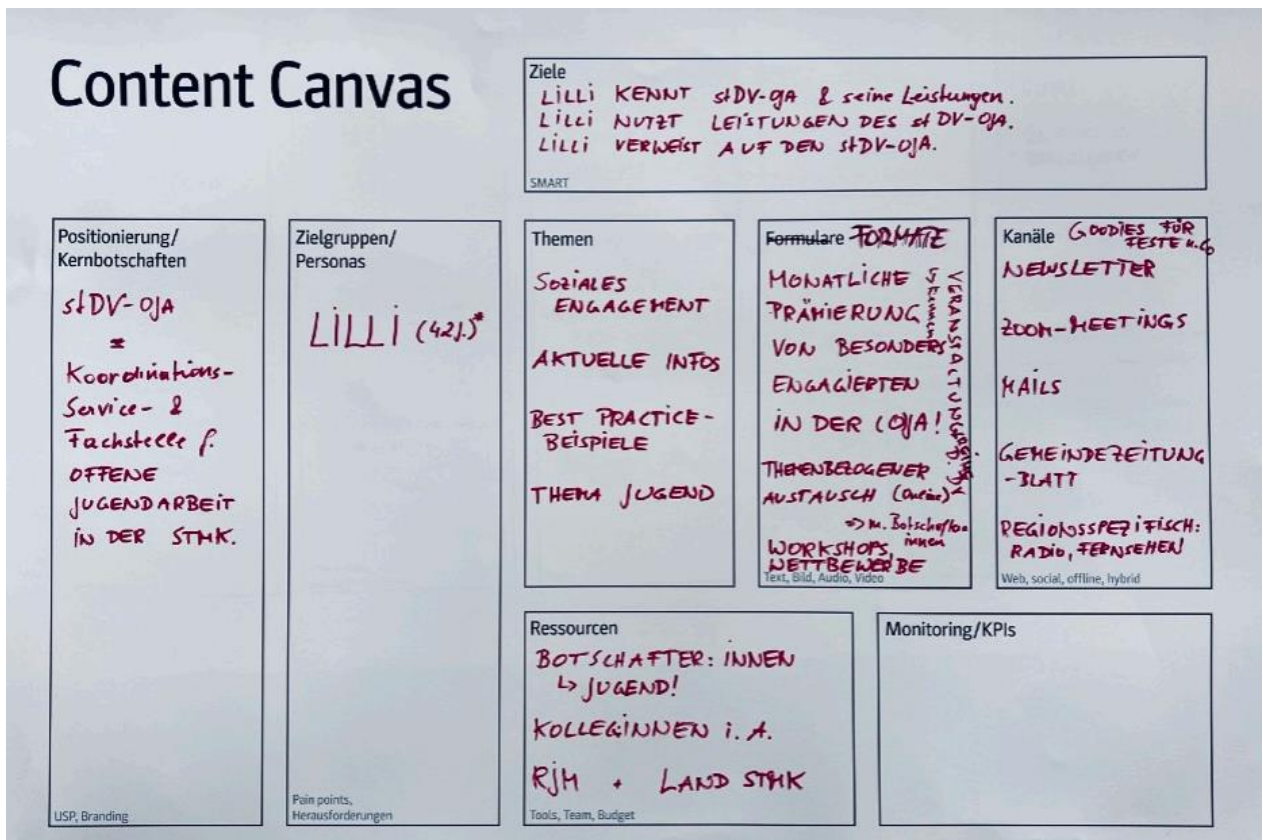 Content Canvas
Ziele
LILLI KENNT stDV-OJA & seine Leistungen.
LILLI NUTZT LEISTUNGEN DES stDV-OJA.
LILLI VERWEIST AUF DEN stDV-OJA.
SMART
Positionierung/
Kernbotschaften
stDV-OJA
=
Koordinations-
Service- &
Fachstelle f.
OFFENE
JUGENDARBEIT
IN DER STMK.
USP, Branding
Zielgruppen/
Personas
LILLI (42J.)*
Pain points,
Herausforderungen
Themen
SOZIALES
ENGAGEMENT
AKTUELLE INFOS
BEST PRACTICE-
BEISPIELE
THEMA JUGEND
Formulare FORMATE
MONATLICHE
PRÄMIERUNG
VON BESONDERS
ENGAGIERTEN
IN DER (OJA!
THEMENBEZOGENER
AUSTAUSCH (Online)
=> m. Botschafter
innen
WORKSHOPS,
WETTBEWERBE
Text, Bild, Audio, Video
Kanäle GOODIES FÜR
FESTE u. Co
NEWSLETTER
ZOOM-MEETINGS
MAILS
GEMEINDEZEITUNG
-BLATT
REGIONSSPEZIFISCH:
RADIO, FERNSEHEN
Web, social, offline, hybrid
Ressourcen
BOTSCHAFTER:INNEN
↳ JUGEND!
KOLLEGINNEN i. A.
RJM + LAND STMK
Tools, Team, Budget
Monitoring/KPIs